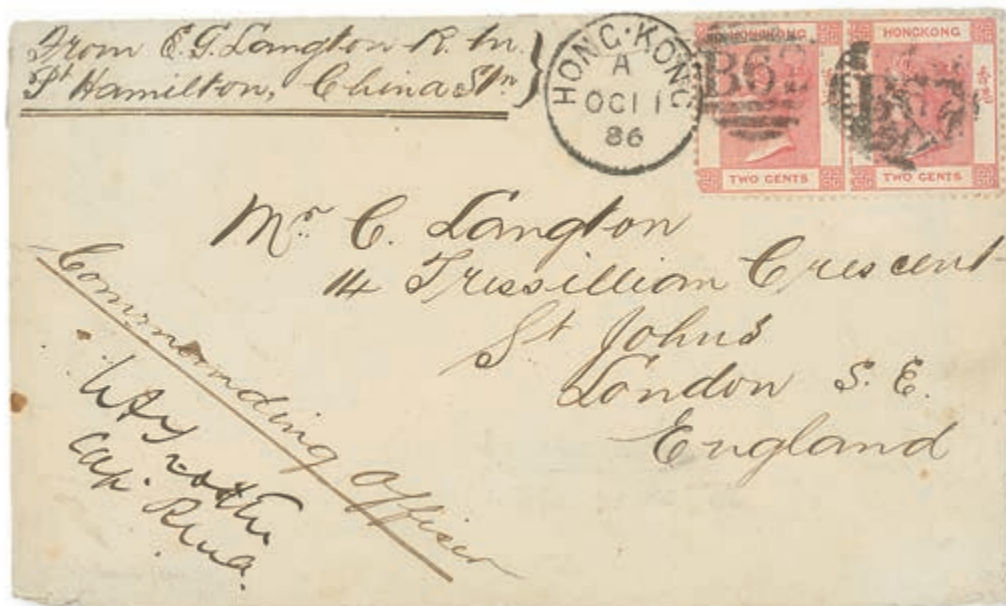 From E. G. Langton R. M.
Pt Hamilton, China Stn
HONG-KONG
A
OC 11
86
B62
B62
HONGKONG
香港
TWO CENTS
TWO CENTS
Mr. C. Langton
14 Tressillian Crescent
St Johns
London S. E.
England
Commanding Officer
Cap. RMA.